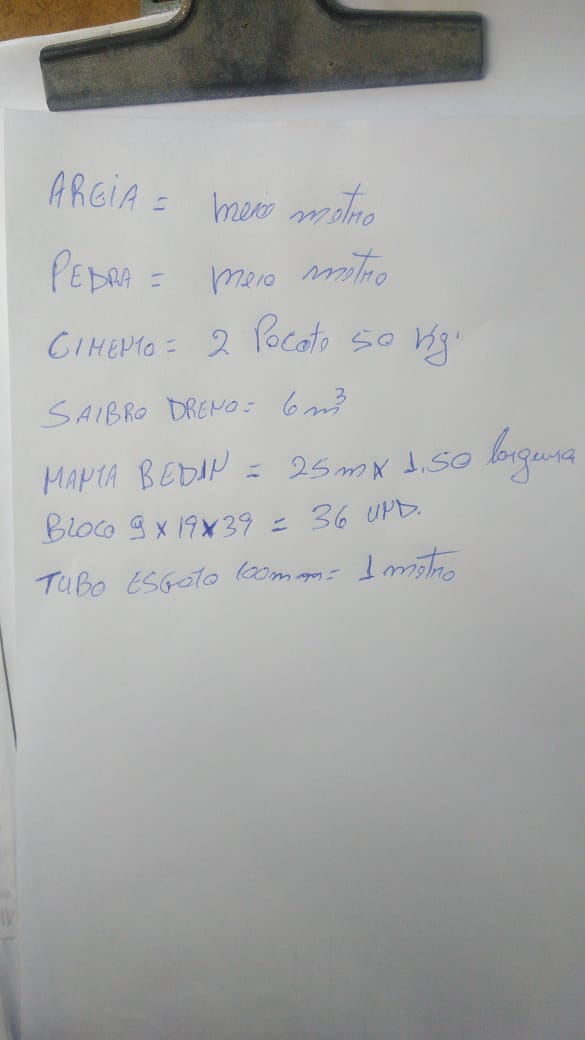 AREIA = meio metro
PEDRA = meio metro
CIMENTO = 2 Pacote 50 Kg.
SAIBRO DRENO = 6 m³
MANTA BEDIN = 25m x 1.50 largura
BLOCO 9 x 19 x 39 = 36 UND.
TUBO ESGOTO 100mm = 1 metro